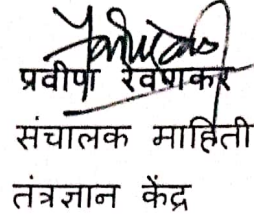 प्रवीण रेवणकर
संचालक माहिती
तंत्रज्ञान केंद्र